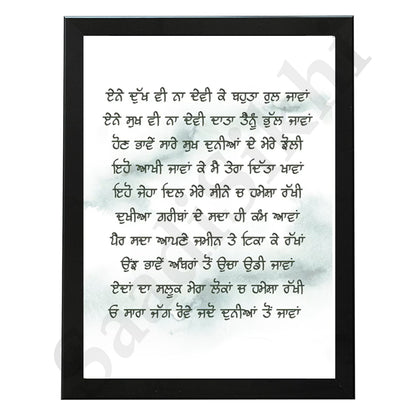 ਏਨੇ ਦੁੱਖ ਵੀ ਨਾ ਦੇਵੀ ਕੇ ਬਹੁਤਾ ਰੁਲ ਜਾਵਾਂ
ਏਨੇ ਸੁਖ ਵੀ ਨਾ ਦੇਵੀ ਦਾਤਾ ਤੈਨੂੰ ਭੁੱਲ ਜਾਵਾਂ
ਹੋਣ ਭਾਵੇਂ ਸਾਰੇ ਸੁਖ ਦੁਨੀਆਂ ਦੇ ਮੇਰੇ ਝੋਲੀ
ਇਹੋ ਆਖੀ ਜਾਵਾਂ ਕੇ ਮੈ ਤੇਰਾ ਦਿੱਤਾ ਖਾਵਾਂ
ਇਹੋ ਜੇਹਾ ਦਿਲ ਮੇਰੇ ਸੀਨੇ ਚ ਹਮੇਸ਼ਾ ਰੱਖੀ
ਦੁਖੀਆ ਗਰੀਬਾਂ ਦੇ ਸਦਾ ਹੀ ਕੰਮ ਆਵਾਂ
ਪੈਰ ਸਦਾ ਆਪਣੇ ਜਮੀਨ ਤੇ ਟਿਕਾ ਕੇ ਰੱਖਾਂ
ਉਂਝ ਭਾਵੇਂ ਅੰਬਰਾਂ ਤੋਂ ਉਚਾ ਉਡੀ ਜਾਵਾਂ
ਏਦਾਂ ਦਾ ਸਲੂਕ ਮੇਰਾ ਲੋਕਾਂ ਚ ਹਮੇਸ਼ਾ ਰੱਖੀ
ਓ ਸਾਰਾ ਜੱਗ ਰੋਂਵੇ ਜਦੋ ਦੁਨੀਆਂ ਤੋਂ ਜਾਵਾਂ